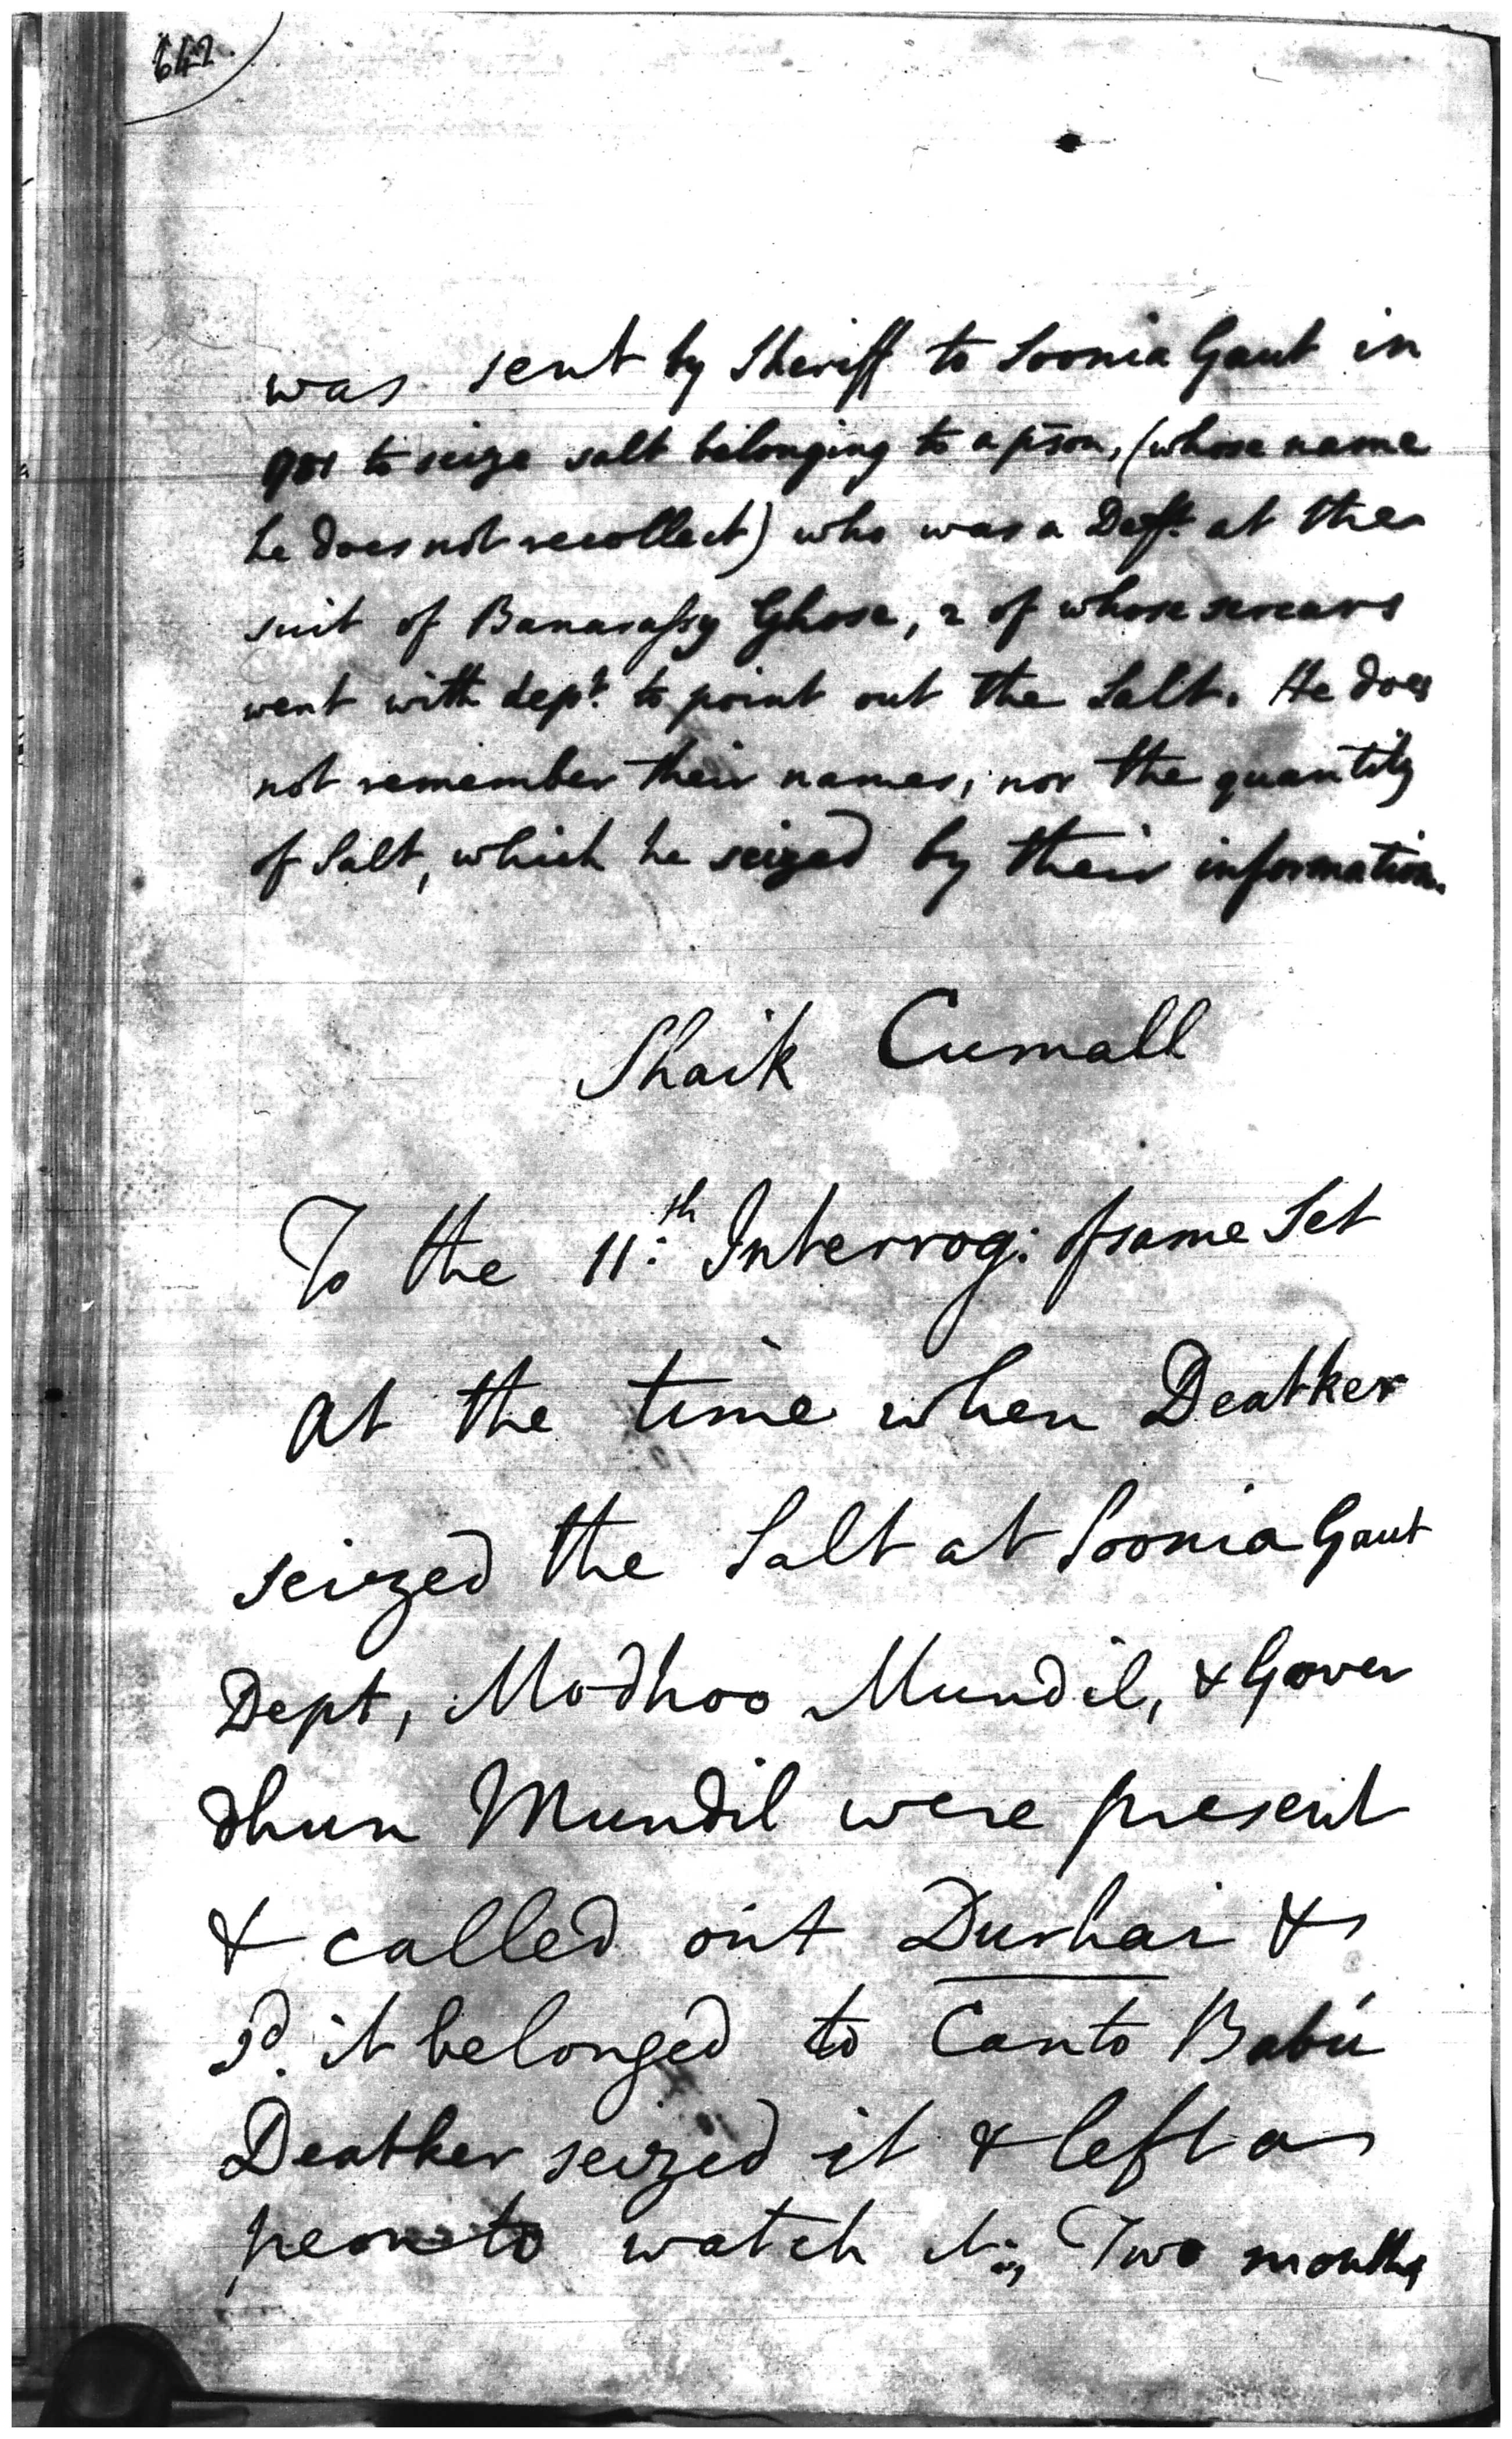 642.
was sent by Sheriff to Soonia Gaut in
to seize salt belonging to a pson, (whose name
he does not recollect) who was a Deft. at the
suit of Banarassy Ghose, 2 of whose sircars
went with dept. to point out the Salt. He does
not remember their names, nor the quantity
of Salt, which he seized by their information.
Shaik Cumall
To the 11:th Interrog: of same Set
At the time when Deatker
seized the Salt at Soonia Gaut
Dept, Modhoo Mundil, & Gover
dhun Mundil were present
& called out Durhai &
sd. it belonged to Canto Babú
Deatker seized it & left a
peon to watch it. Two months